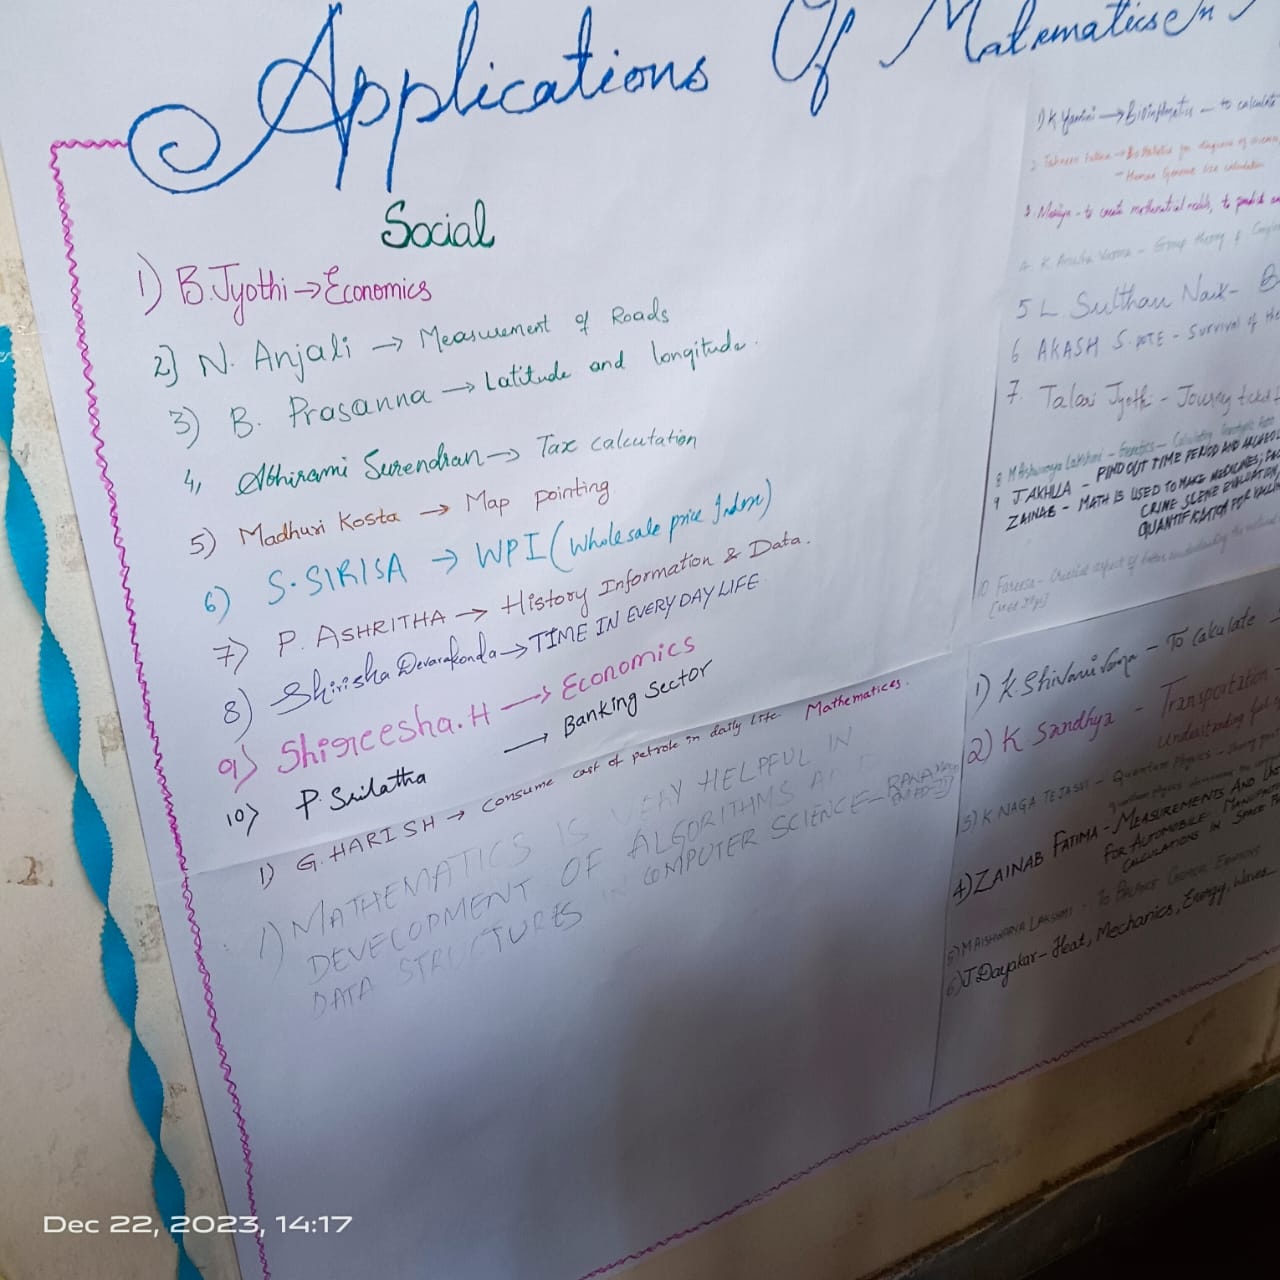 Applications Of Matematics In
Social
1) B.Jyothi → Economics
2) N. Anjali → Measurement of Roads
3) B. Prasanna → Latitude and longitude.
4, Abhirami Surendran → Tax calculation
5) Madhuri Kosta → Map pointing
6) S. SIRISA → WPI (Wholesale price Index)
7) P. ASHRITHA → History Information & Data.
8) Shirisha Devarakonda → TIME IN EVERY DAY LIFE
9) Shireesha.H → Economics
10) P. Srilatha → Banking Sector
1) G. HARISH → Consume cost of petrole in daily life Mathematices.
1) MATHEMATICS IS VERY HELPFUL IN
DEVELOPMENT OF ALGORITHMS AND
DATA STRUCTURES IN COMPUTER SCIENCE -
1) K Yamini → Bioinformatics - to calculate
- Human Genome size calculation
- to create mathematical models, to predict
4. K. Anusha Varma - Group theory &
5 L. Sulthan Naik -
6 AKASH S. POTE - Survival of the
7. Talari Jyothi - Journey ticket
8 M Aishwarya Lakshmi - Genetics - Calculating
9 J AKHILA - FIND OUT TIME PERIOD AND
ZAINAB - MATH IS USED TO MAKE MEDICINES,
CRIME SCENE EVALUATION
QUANTIFICATION FOR
10 Fareesa - Crucial aspect of
1) K. Shivani Varma - To Calculate
2) K Sandhya - Transportation
Understanding
3) K NAGA TEJASVI - Quantum Physics -
4) ZAINAB FATIMA - MEASUREMENTS AND
FOR AUTOMOBILE,
CALCULATIONS IN SPACE
5) M AISHWARYA LAKSHMI - To BALANCE CHEMICAL EQUATIONS
6) J Dayakar - Heat, Mechanics, Energy, Waves
Dec 22, 2023, 14:17